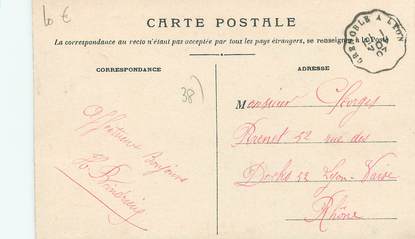 10 €
CARTE POSTALE
La correspondance au recto n'étant pas acceptée par tous les pays étrangers, se renseigner à la Poste
GRENOBLE A LYON
CORRESPONDANCE
ADRESSE
38
Monsieur Georges
52 rue des
Docks 52 Lyon-Vaise
Rhône
Affectueux Bonjours